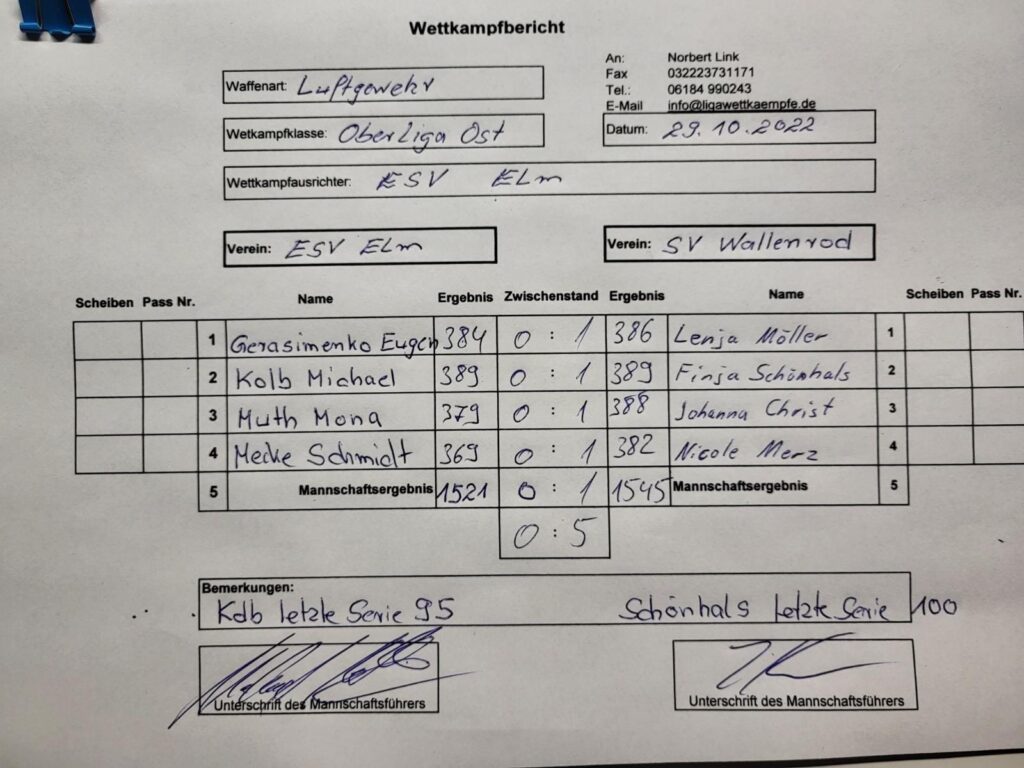 Wettkampfbericht
An: Norbert Link
Fax 032223731171
Tel.: 06184 990243
E-Mail info@ligawettkaempfe.de
Waffenart: Luftgewehr
Wetkampfklasse: Oberliga Ost
Datum: 29.10.2022
Wettkampfausrichter: ESV ELm
Verein: ESV ELm
Verein: SV Wallenrod
Scheiben Pass Nr. Name Ergebnis Zwischenstand Ergebnis Name Scheiben Pass Nr.
1 Gerasimenko Eugen 384 0 : 1 386 Lenja Möller 1
2 Kolb Michael 389 0 : 1 389 Finja Schönhals 2
3 Muth Mona 379 0 : 1 388 Johanna Christ 3
4 Meike Schmidt 369 0 : 1 382 Nicole Merz 4
5 Mannschaftsergebnis 1521 0 : 1 1545 Mannschaftsergebnis 5
0 : 5
Bemerkungen:
Kolb letzte Serie 95 Schönhals letzte Serie 100
Unterschrift des Mannschaftsführers
Unterschrift des Mannschaftsführers